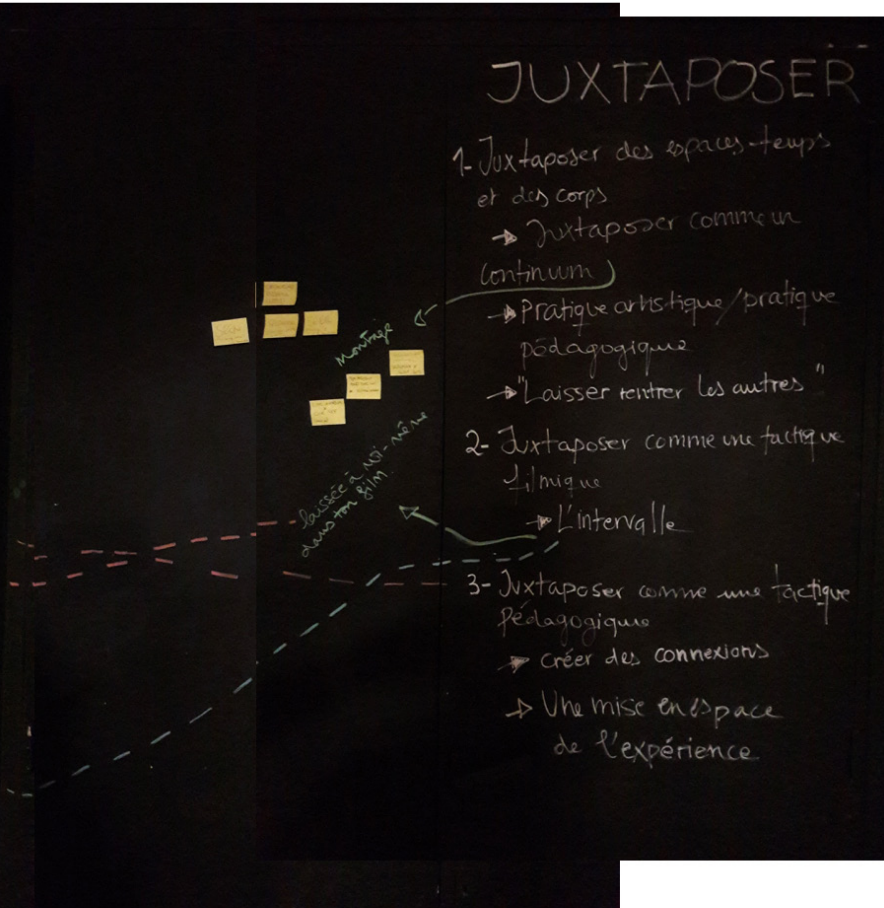 JUXTAPOSER
1- Juxtaposer des espaces-temps
et des corps
→ Juxtaposer comme un
continuum
→ Pratique artistique/pratique
pédagogique
→ "Laisser rentrer les autres"
2- Juxtaposer comme une tactique
filmique
→ L'intervalle
3- Juxtaposer comme une tactique
pédagogique
→ créer des connexions
→ Une mise en espace
de l'expérience
Montage
laissée à moi-même
dans ton film.